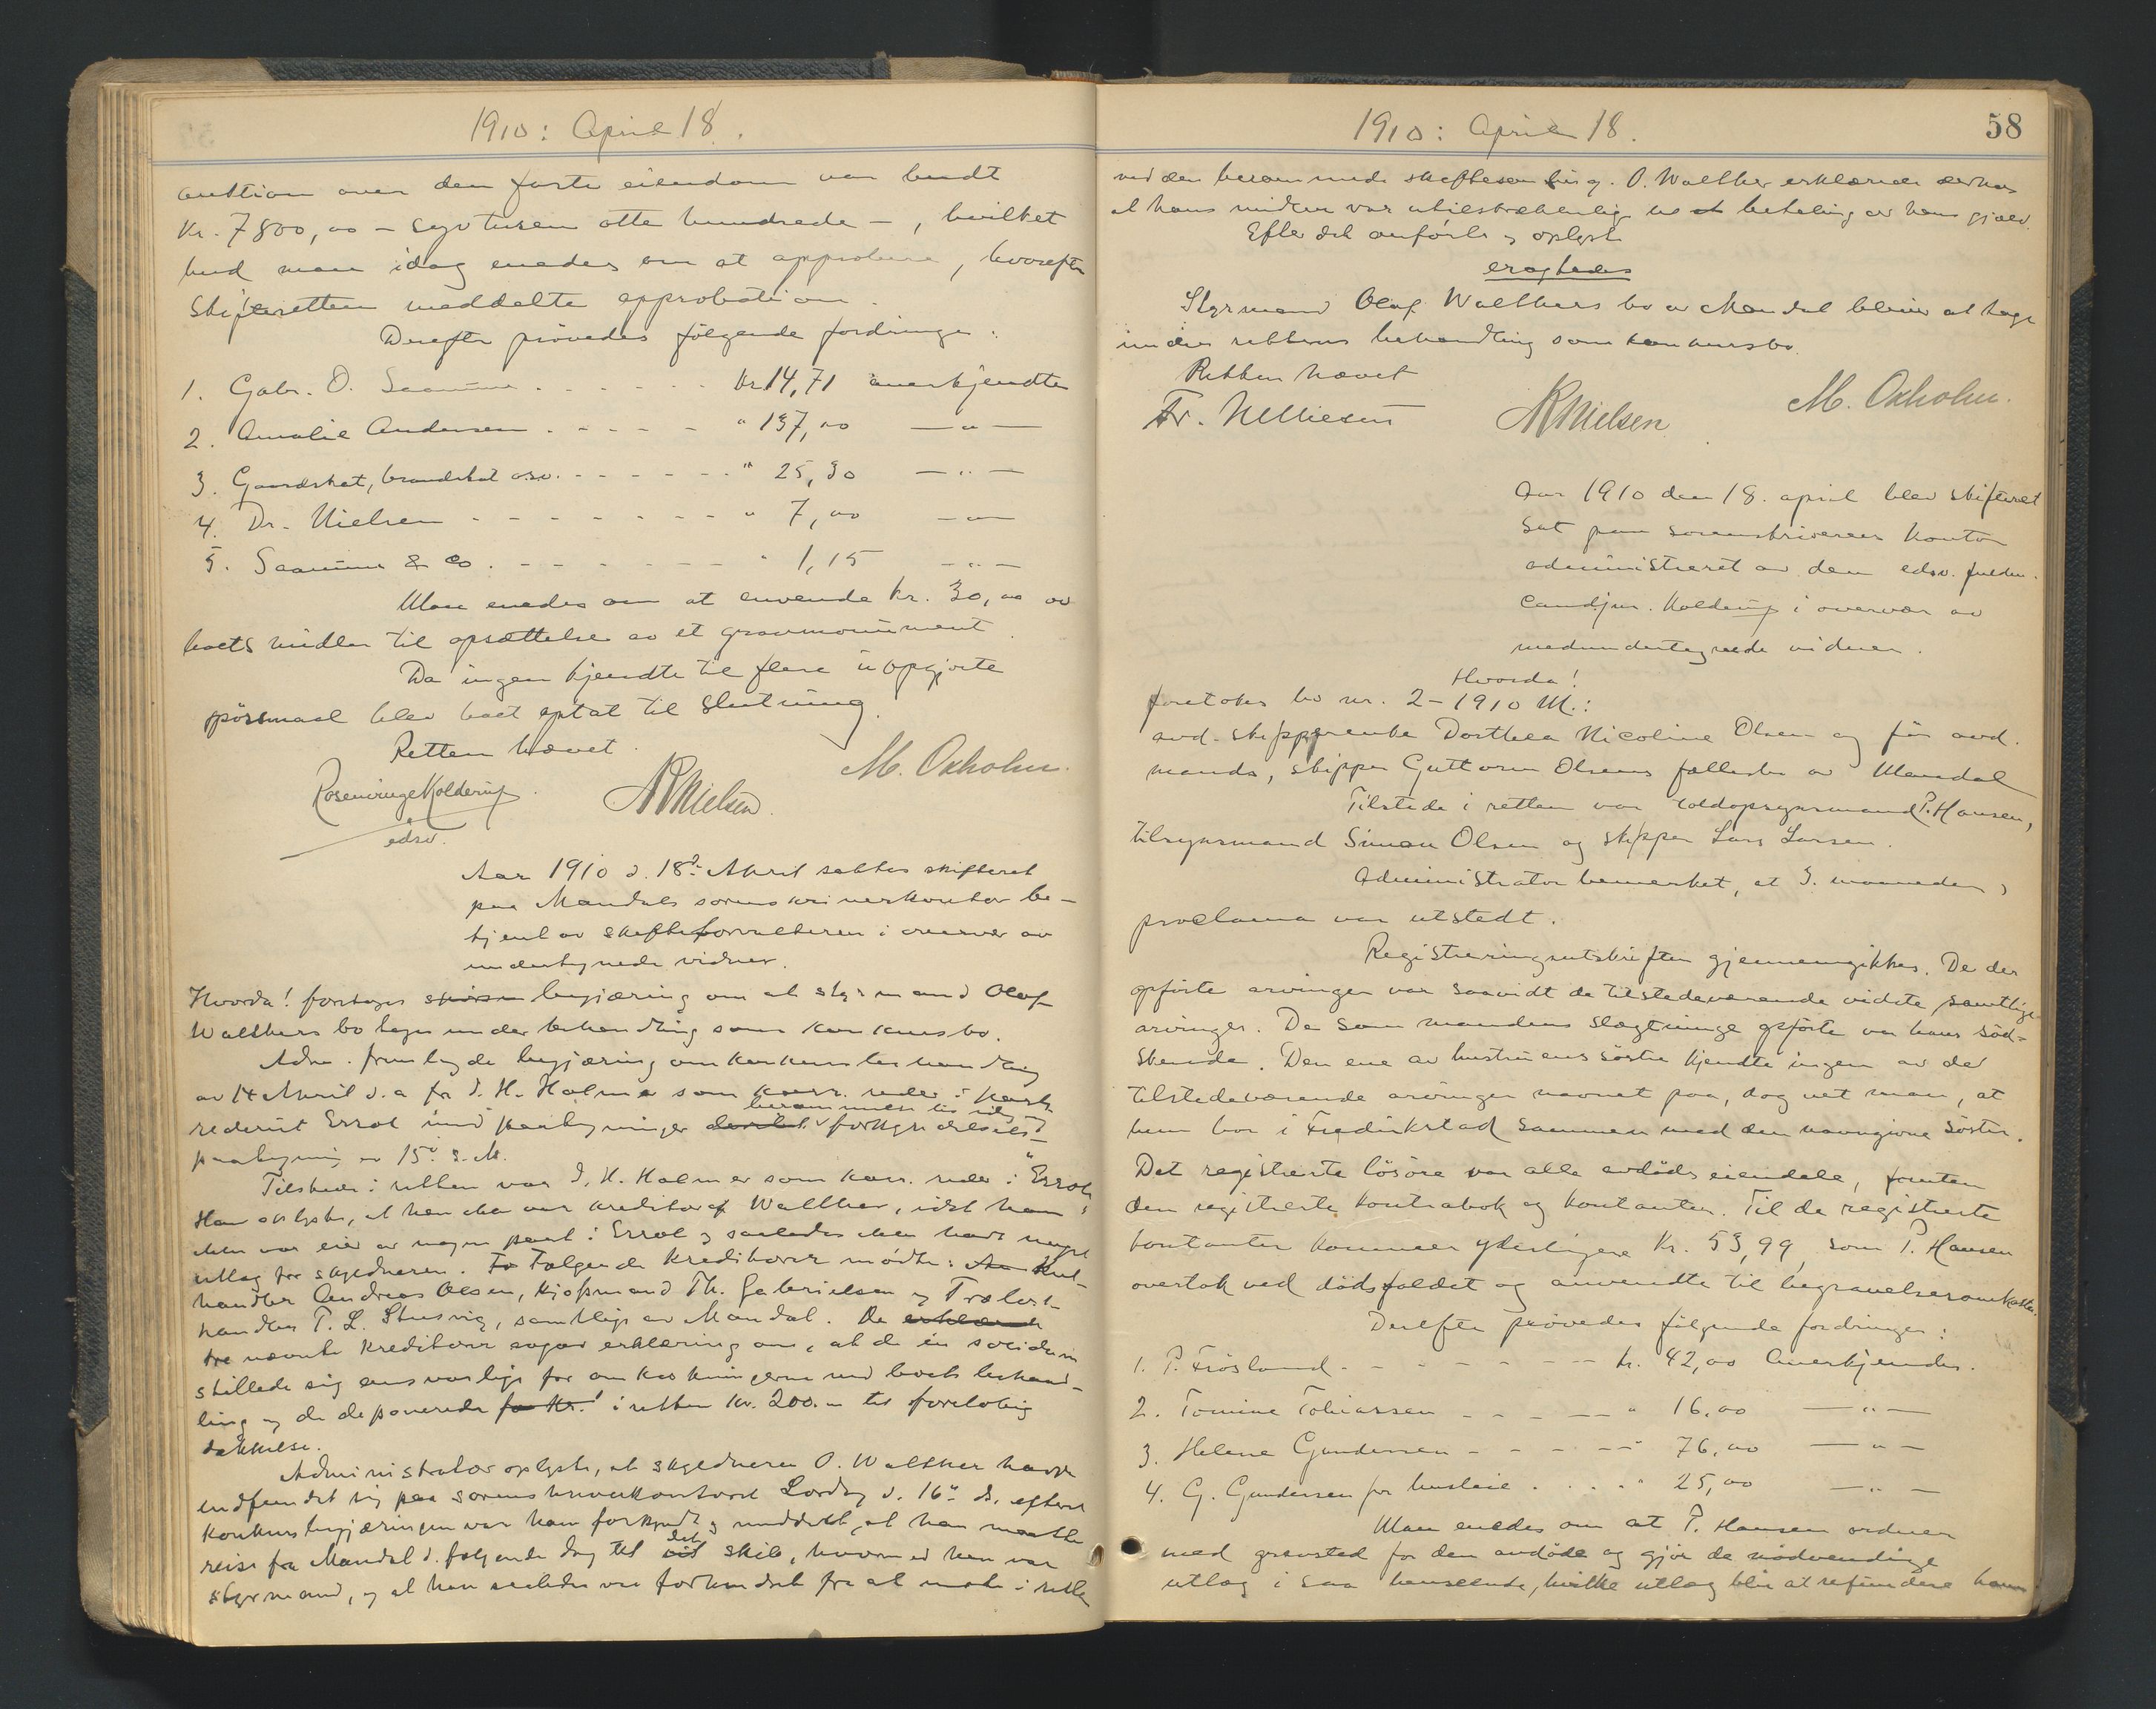 1910: April 18.
auktion over den faste eiendom var budt
Kr. 7800,00 - syvtusen otte hundrede - , hvilket
bud man idag enedes om at approbere, hvorefter
Skifteretten meddelte approbation.
Derefter prövedes følgende fordringer:
1. Gabr. O. Saanum . . . . . . kr 14,71 anerkjendtes
2. Amalie Andersen . . . . . " 137,00 — " —
3. Gaardskat, brandskat osv. . . . . . . " 25,30 — " —
4. Dr. Nielsen . . . . . . . . " 7,00 — " —
5. Saanum & Co. . . . . . . . " 1,15 — " —
Man enedes om at anvende kr. 30,00 av
boets midler til opsættelse av et gravmonument.
Da ingen kjendte til flere uopgjorte
spörsmaal blev boet optat til slutning.
Retten hævet.
Rosenvinge Kolderup
edsv.
NNielsen.
M. Oxholm.
Aar 1910 d. 18de April sattes skifteret
paa Mandals sorenskriverkontor be-
tjent av skifteforvalteren i overvær av
undertegnede vidner.
Hvorda! foretoges begjæring om at styrmand Olaf
Walthers bo tages under behandling som konkursbo.
Adm. fremlagde begjæring om konkursbehandling
av 14 April d. a. fra J. H. Holmer som korr. reder i
rederiet Errol med paategninger berammelse til idag forkyndelses-
paategning av 15de s. M.
Tilstede i retten var J. H. Holmer som korr. reder i "Errol"
Han oplyste, at han ikke var kreditor af Walther, idet han
ikke var eier av nogen part i Errol og saaledes ikke havde noget
utlæg for skyldneren. Følgende kreditorer mødte: Kul-
handler Andreas Olsen, kjøpmand Th. Gabrielsen og Trælast-
handler T. L. Stusvig, samtlige av Mandal. De
tre nævnte kreditorer avgav erklæring om, at de in solidum
stillede sig ansvarlige for omkostningerne med boets behand-
ling og de deponerede i retten kr. 200.00 til foreløbig
dækkelse.
Administrator oplyste, at skyldneren O. Walther havde
indfundet sig paa sorenskriverkontoret Lørdag d. 16de ds. efterat
konkursbegjæringen var ham forkyndt og meddelt, at han maatte
reise fra Mandal d. følgende dag til det skib, hvorved han var
styrmand, og at han saaledes var forhindret fra at møde i retten
1910: April 18.
58
ved den berammede skiftesamling. O. Walther erklærede derhos
at hans midler var utilstrækkelig til betaling av hans gjæld.
Efter det anførte og oplyste
eragtedes
Styrmand Olaf Walthers bo av Mandal bliver at tage
under rettens behandling som konkursbo.
Retten hævet
NNielsen
M. Oxholm.
Aar 1910 den 18. april blev skifteret
sat paa sorenskriverens kontor
administreret av den edsv. fuldm.
cand jur. Kolderup i overvær av
medundertegnede vidner.
Hvorda!
foretokes bo nr. 2-1910 M.:
avd. skipperenke Dorthea Nicoline Olsen og før avd.
mands, skipper Guttorm Olsens fællesbo av Mandal
Tilstede i retten var toldopsynsmand P. Hansen,
tilsynsmand Simon Olsen og skipper Lars Larsen.
Administrator bemerket, at 3. maaneders
proclama var utstedt.
Registreringsutskriften gjennemgikkes. De der
opførte arvinger var saavidt de tilstedeværende vidste samtlige
arvinger. De som mandens slægtninge opførte var hans söd-
skende. Den ene av hustruens söstre kjendte ingen av de
tilstedeværende arvinger navnet paa, dog vet man, at
hun bor i Fredrikstad sammen med den navngivne söster.
Det registrerte lösöre var alle avdödes eiendele, foruten
den registrerte kontrabok og kontanter. Til de registrerte
kontanter kommer yderligere kr. 53,99, som P. Hansen
overtok ved dödsfaldet og anvendte til begravelsesomkostn.
Derefter prövedes følgende fordringer:
1. P. Frösland . . . . . . . kr. 42,00 Anerkjendes.
2. Tomine Tobiassen . . . . . " 16,00 — " —
3. Helene Gundersen . . . . . " 76,00 — " —
4. G. Gundersen for husleie . . . . " 25,00 — " —
Man enedes om at P. Hansen ordner
med gravsted for den avdöde og gjör de nödvendige
utlæg i saa henseende, hvilke utlæg blir at refundere ham